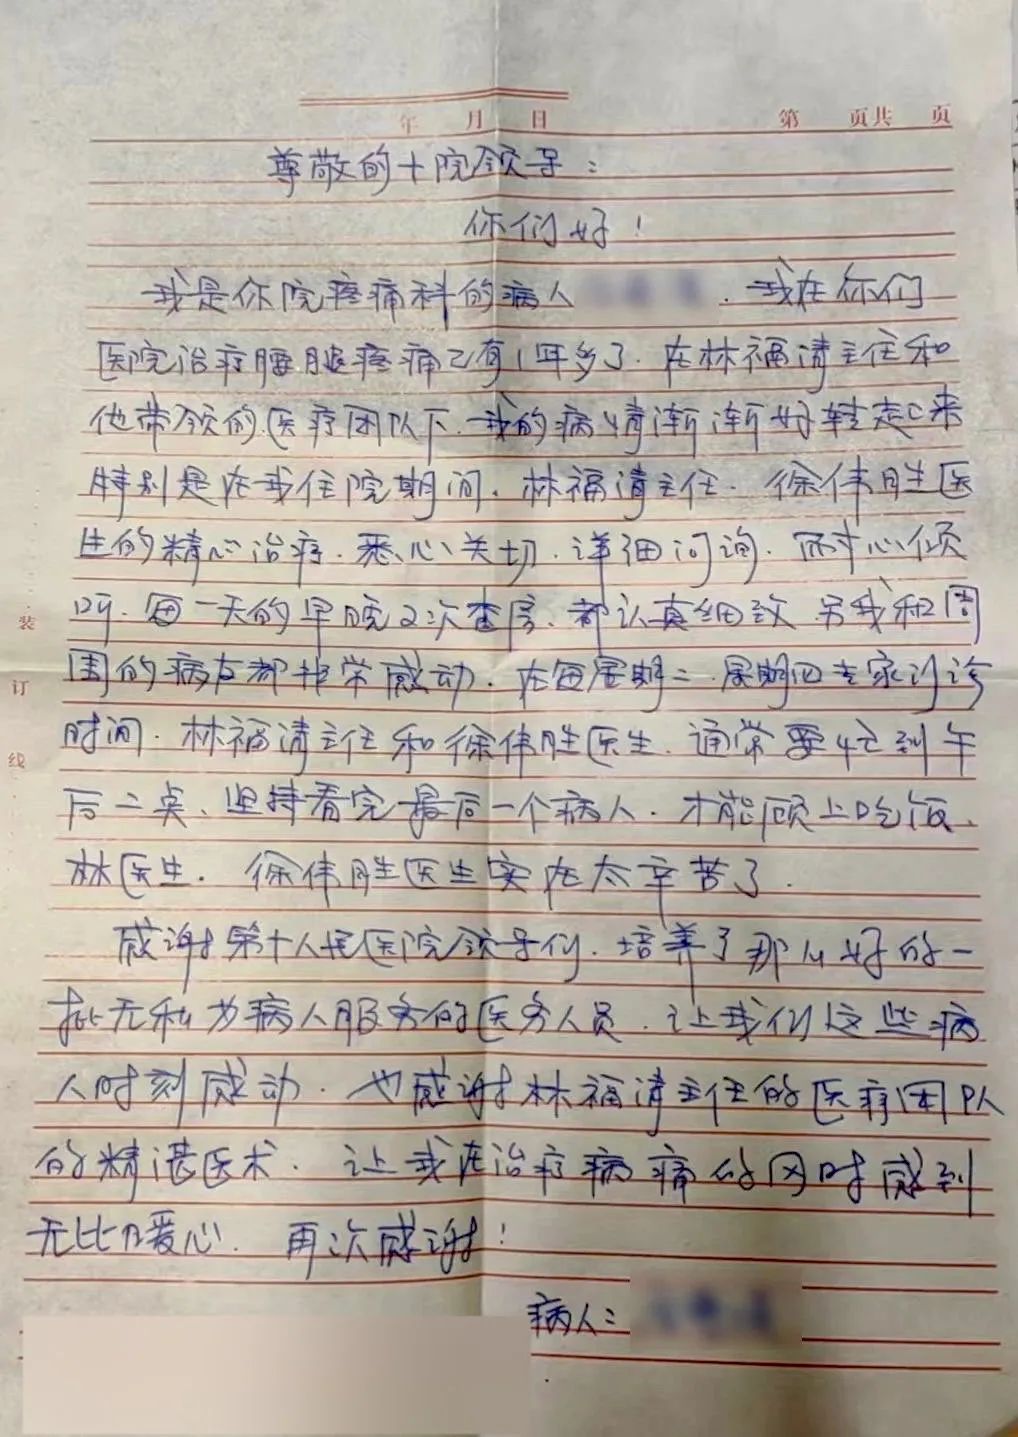 年 月 日 第 页共 页
尊敬的十院领导：
你们好！
我是你院疼痛科的病人 . 我在你们
医院治疗腰腿疼痛已有1年多了. 在林福清主任和
他带领的医疗团队下. 我的病情渐渐好转起来
特别是在我住院期间. 林福清主任. 徐伟胜医
生的精心治疗. 悉心关切. 详细问询. 耐心倾
听. 每一天的早晚2次查房、都认真细致 另我和周
围的病友都非常感动. 在每星期二. 星期四专家门诊
时间. 林福清主任和徐伟胜医生. 通常要忙到午
后二点、坚持看完最后一个病人. 才能顾上吃饭、
林医生. 徐伟胜医生实在太辛苦了.
感谢第十人民医院领导们. 培养了那么好的一
批无私为病人服务的医务人员. 让我们这些病
人时刻感动. 也感谢林福清主任的医疗团队
的精湛医术. 让我在治疗病痛的同时感到
无比暖心. 再次感谢！
病人：
装
订
线